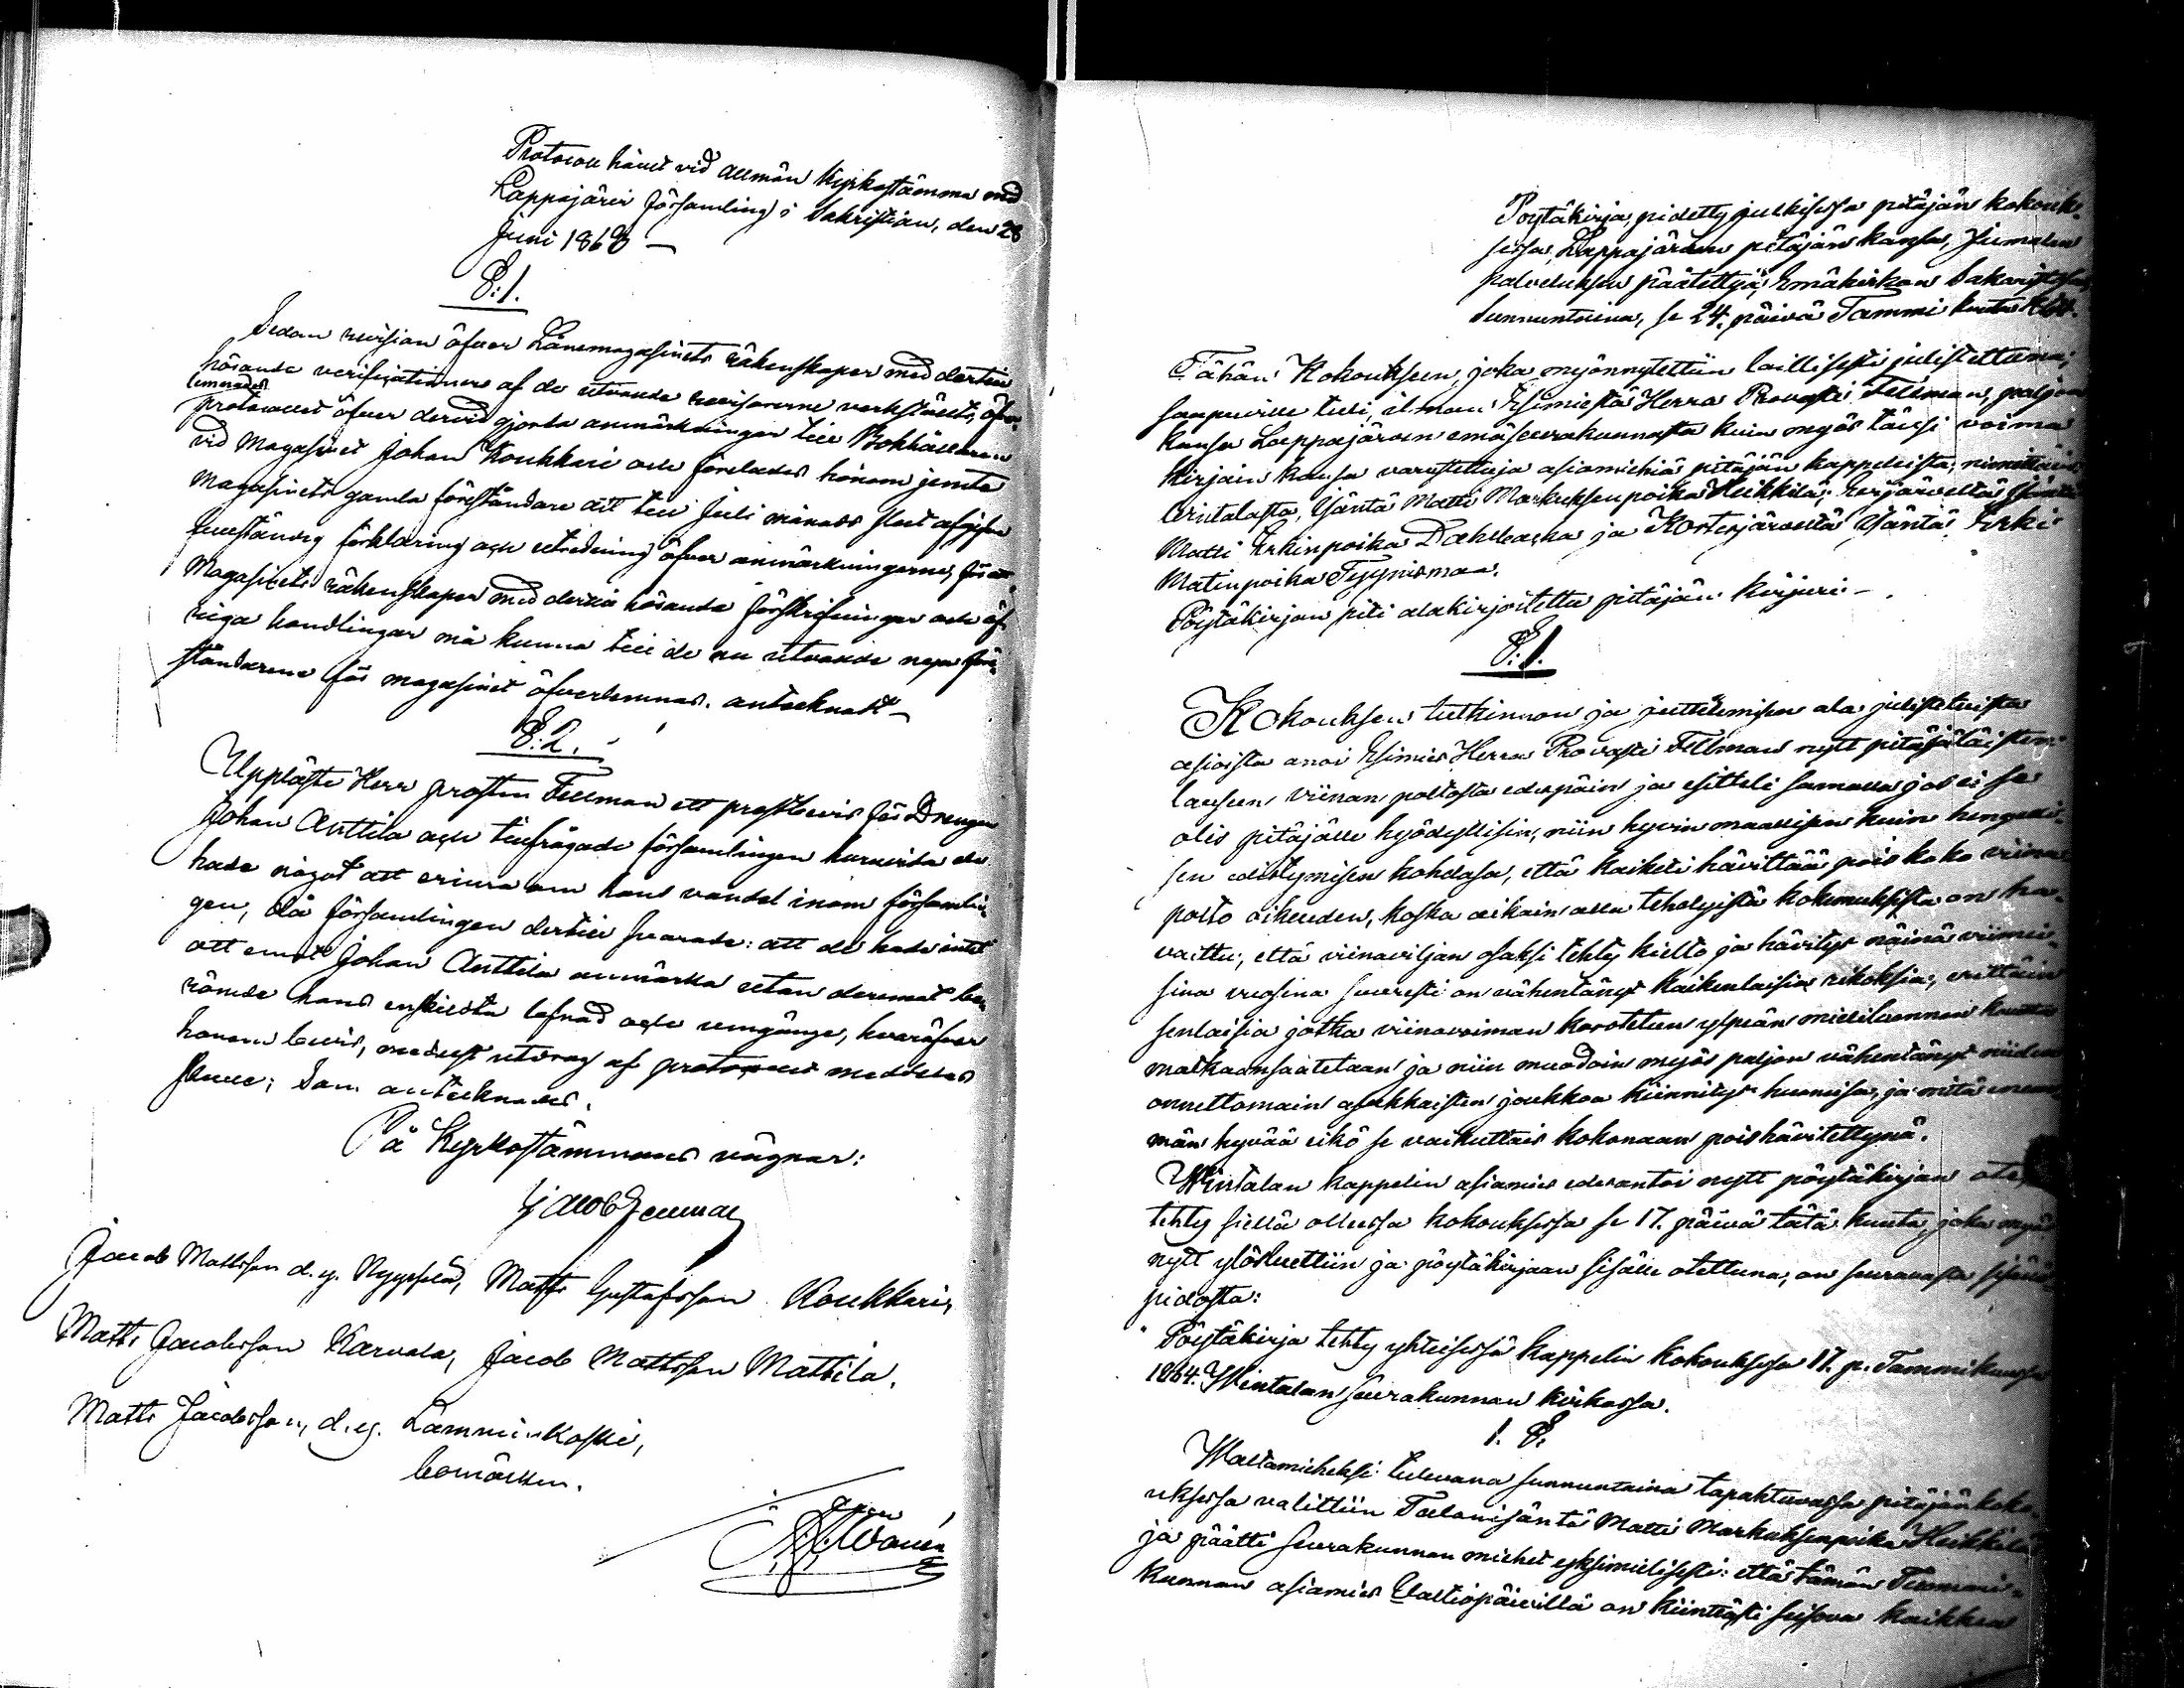 Protocoll hållit vid allmän Kyrkostämma med
Lappajärvi församling i Sakristian, den 28
Juni 1863 –
§: 1.
Sedan revision öfver Lånemagasinets räkenskaper med dertill
hörande verificationer af de utvalde revisorerne verkstälts, öfver-
lemnades
protocollet öfver dervid gjorda anmärkningar till Bokhållaren
vid Magasinet Johan Koukkari och förelades honom jemte
Magasinets gamla föreståndare att till Juli månads slut afgifva
fullständig förklaring och utredning öfver anmärkningarne, för att
Magasinets räkenskaper med dertill hörande förskrifningar och öf-
riga handlingar må kunna till de nu utvalde nya före-
ståndarena för magasinet öfverlemnas. antecknadt –
§: 2.
Uppläste Herr prosten Fellman ett prestbevis för Drengen
Johan Anttila och tillfrågade församlingen huruvida de
hade något att erinra om hans vandel inom församlin-
gen, då församlingen dertill svarade: att de hade intet
att emot Johan Anttila anmärka utan deremot be-
römde hans enskilda lefnad och umgänge, hvaröfver
honom bevis, medelst utdrag af protocollet meddelas
skulle; Som antecknades.
På Kyrkostämmans vägnar:
Jacob Fellman
Jacob Mattsson d. y. Nyyssölä, Matts Gustafsson Koukkari,
Matts Jacobsson Karvala, Jacob Mattsson Mattila.
Matts Jacobsson, d. y. Lamminkoski,
bomärken.
Pöytäkirja, pidetty julkisessa pitäjän kokouk-
sessa, Lappajärven pitäjän kansa, Jumalan
palveluksen päätettyä, Emäkirkon Sakaristossa
Sunnuntaina, se 24. päivä Tammi kuuta 1864.
Tähän Kokoukseen, joka myönnytettiin laillisesti julistettuna,
saapuville tuli, ilman Esimiestä Herra Provasti Fellman, paljon
kansa Lappajärven emäseurakunnasta kuin myös täysi voima
kirjain kansa varustettuja asiamiehiä pitäjän kappeleista; nimittäin
Wintalasta, Isäntä Matti Markuksenpoika Heikkilä; Evijärveltä Isäntä
Matti Erkinpoika Dahlbacka ja Kortesjärveltä Isäntä Erki
Matinpoika Tyynismaa.
Pöytäkirjan piti alakirjoitettu pitäjän kirjuri –
§: 1.
Kokouksen tutkinnon ja juttelemisen ala julistetuista
asioista anoi Esimies Herra Provasti Fellman nytt pitäjäläisten
lauseen viinan poltosta edespäin ja esitteli samassa jos ei se
olis pitäjälle hyödyllisin, niin hyvin maallisen kuin hengelli-
sen edistymisen kohdassa, että kaiketi hävittää pois koko viinan
polto oikeuden, koska aikain alla tehdyistä kokemuksista on ha-
vaittu, että viinaviljan osaksi tehty kielto ja hävitys näinä viimei-
sinä vuosina suuresti on vähentänyt kaikenlaisia rikoksia, erittäin
senlaisia jotka viinavoiman korotetun ylpeän mieliluonnon kautta
matkaansaatetaan ja niin muodoin myös paljon vähentänyt niiden
onnettomain asukkaisten joukkoa kiinnitys huoneissa, ja mitä enem-
män hyvää eikö se vaikuttais kokonaan poishävitettynä.
Wintalan kappelin asiamies edesantoi nytt pöytäkirjan ote,
tehty siellä ollessa kokouksessa se 17. päivä tätä kuuta, joka myös
nytt ylösluettiin ja pöytäkirjaan sisälle otettuna, on seuraavasta sisälle
pidosta:
" Pöytäkirja tehty yhteisessä kappelin kokouksessa 17. p. Tammikuussa
1864. Wintalan seurakunnan kirkossa.
1. §.
Waltamieheksi tulevana sunnuntaina tapahtuvassa pitäjänkoko-
uksessa valittiin Talonisäntä Matti Markuksenpoika Heikkilä
ja päätti seurakunnan miehet yksimielisesti: että tämän
kunnan asiamies Valtiopäivillä on kiinteästi seisova kaikkea